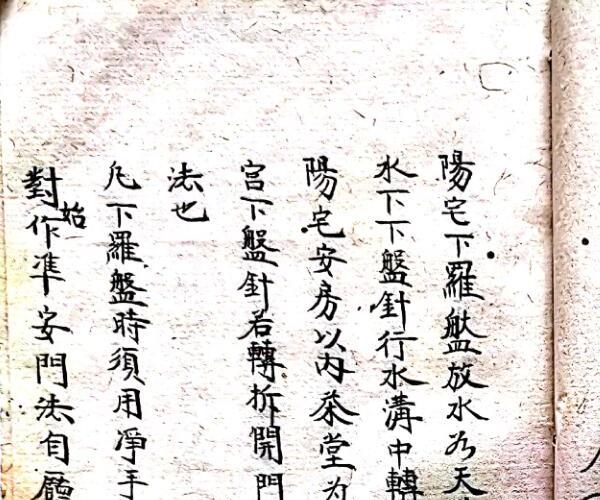 陽宅下羅盤放水為天
水下下盤針行水溝中轉
陽宅安房以內茶堂为
宫下盤針若轉折開門
法也
凡下羅盤時須用净手
對始作準安門法自廳